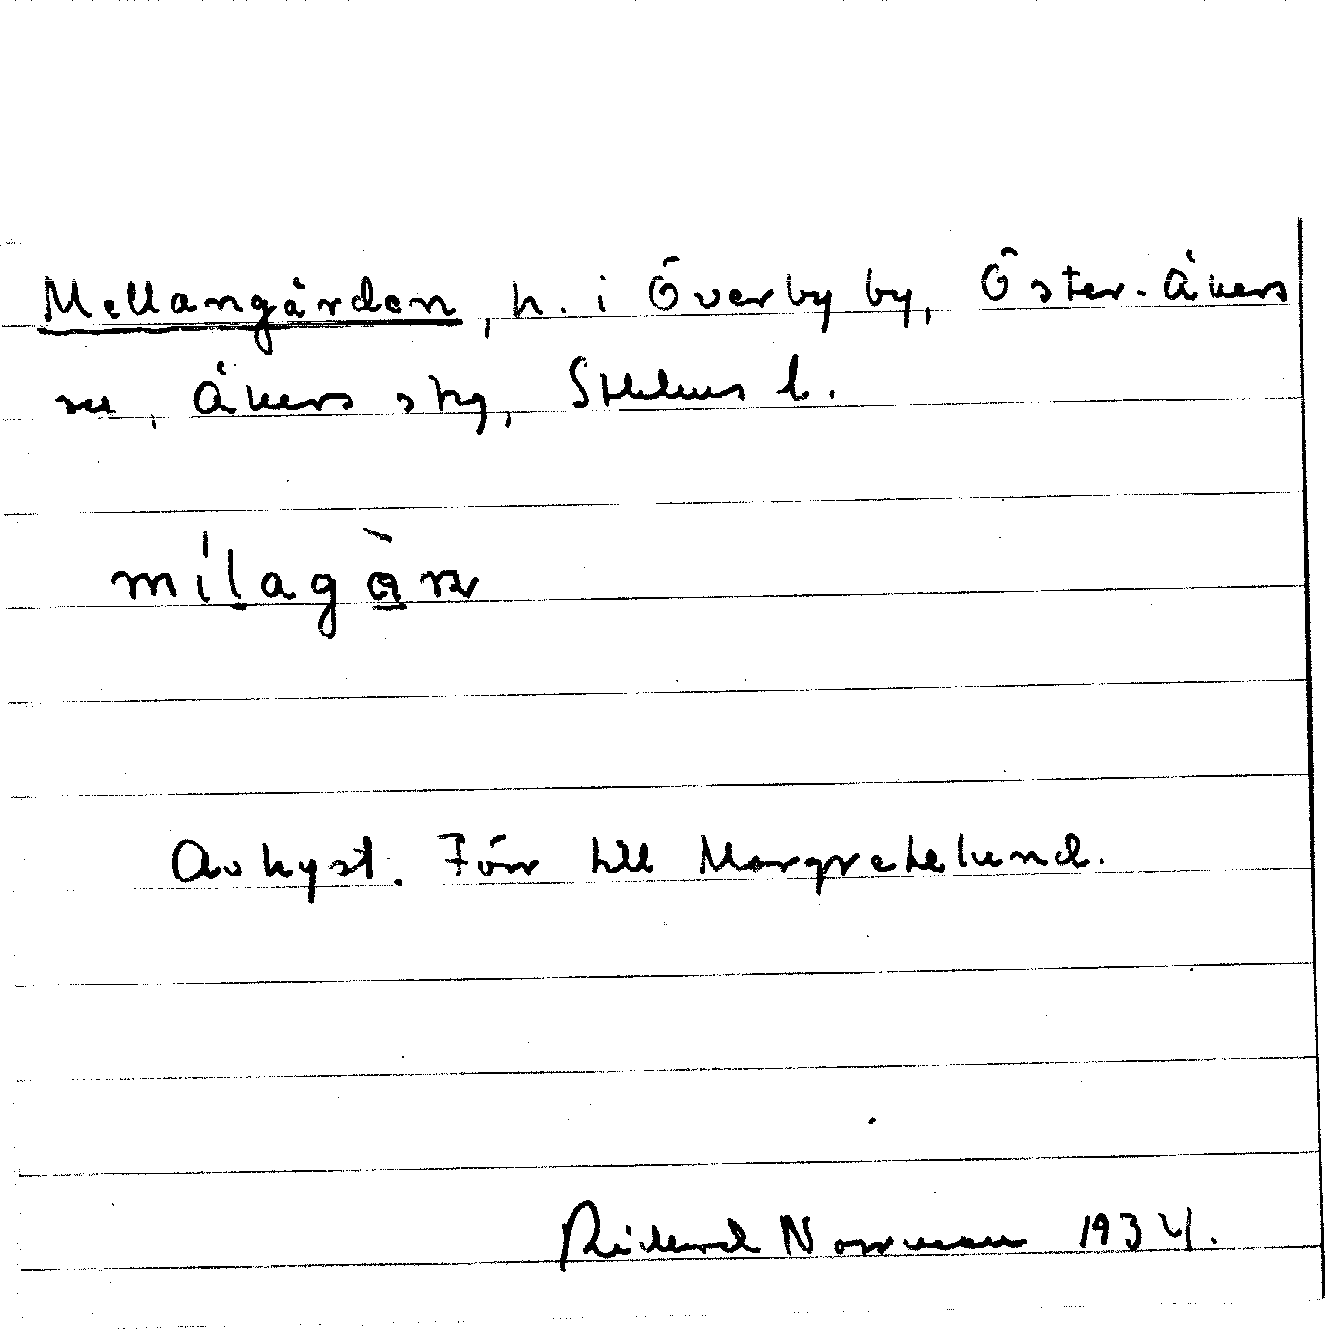 Mellangården, h. i Överby by, Öster-Åkers
sn, Åkers skg, Sthlms l.
mílagàṇ
Avhyst. Förr till Margretelund.
Rickard Norrman 1934.